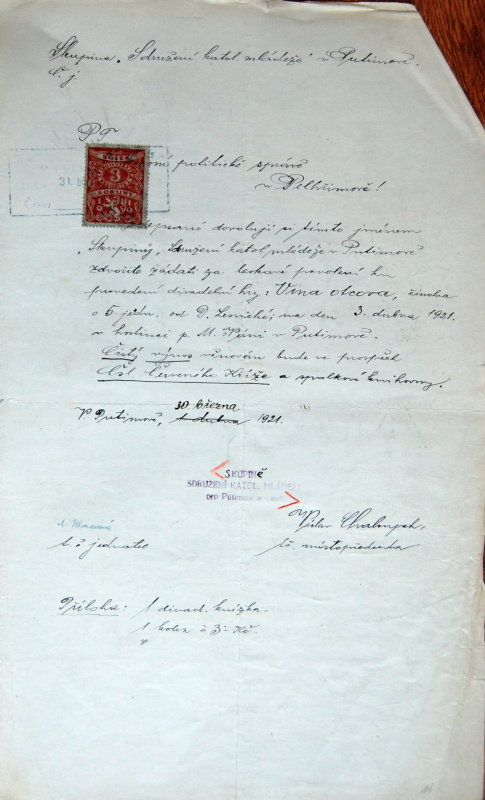 Skupina „Sdružení katol. mládeže" v Putimově.
Č. j.
PT
31
KOLEK
3
KORUNY
politické správě
v Pelhřimově!
dovolují si tímto jménem
„Skupiny „Sdružení katol. mládeže v Putimově
zdvořile žádati za laskavé povolení ku
provedení divadelní hry: Vina otcova, činohra
o 5 jedn. od D. Lesnické, na den 3. dubna 1921.
v hostinci p. M. Váni v Putimově.
Čistý výnos věnován bude ve prospěch
Čsl. Červeného Kříže a spolkové knihovny.
30 března
V Putimově, 1 dubna 1921.
SKUPINĚ
SDRUŽENÍ KATOL. MLÁDEŽE
pro Putimov a okolí
Václav
t. č. jednatel
t. č. místopředseda
Příloha: 1 divad. knížka.
1 kolek à 3 Kč.